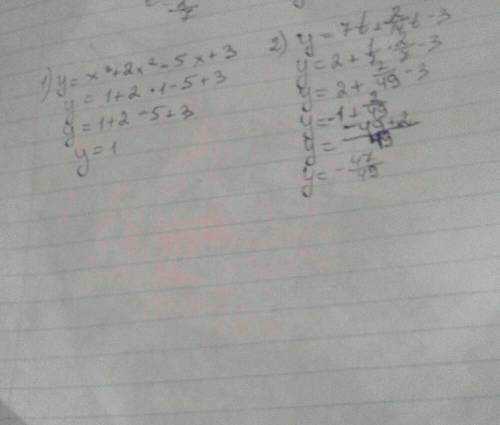 1) y = x³+2x²-5x+3
y = 1+2·1-5+3
y = 1+2-5+3
y = 1
2) y = 7t+\frac{2}{14}t-3
y = 2+\frac{1}{7}·\frac{2}{7}-3
y = 2+\frac{2}{49}-3
y = -1+\frac{2}{49}
y = \frac{-49+2}{49}
y = -\frac{47}{49}